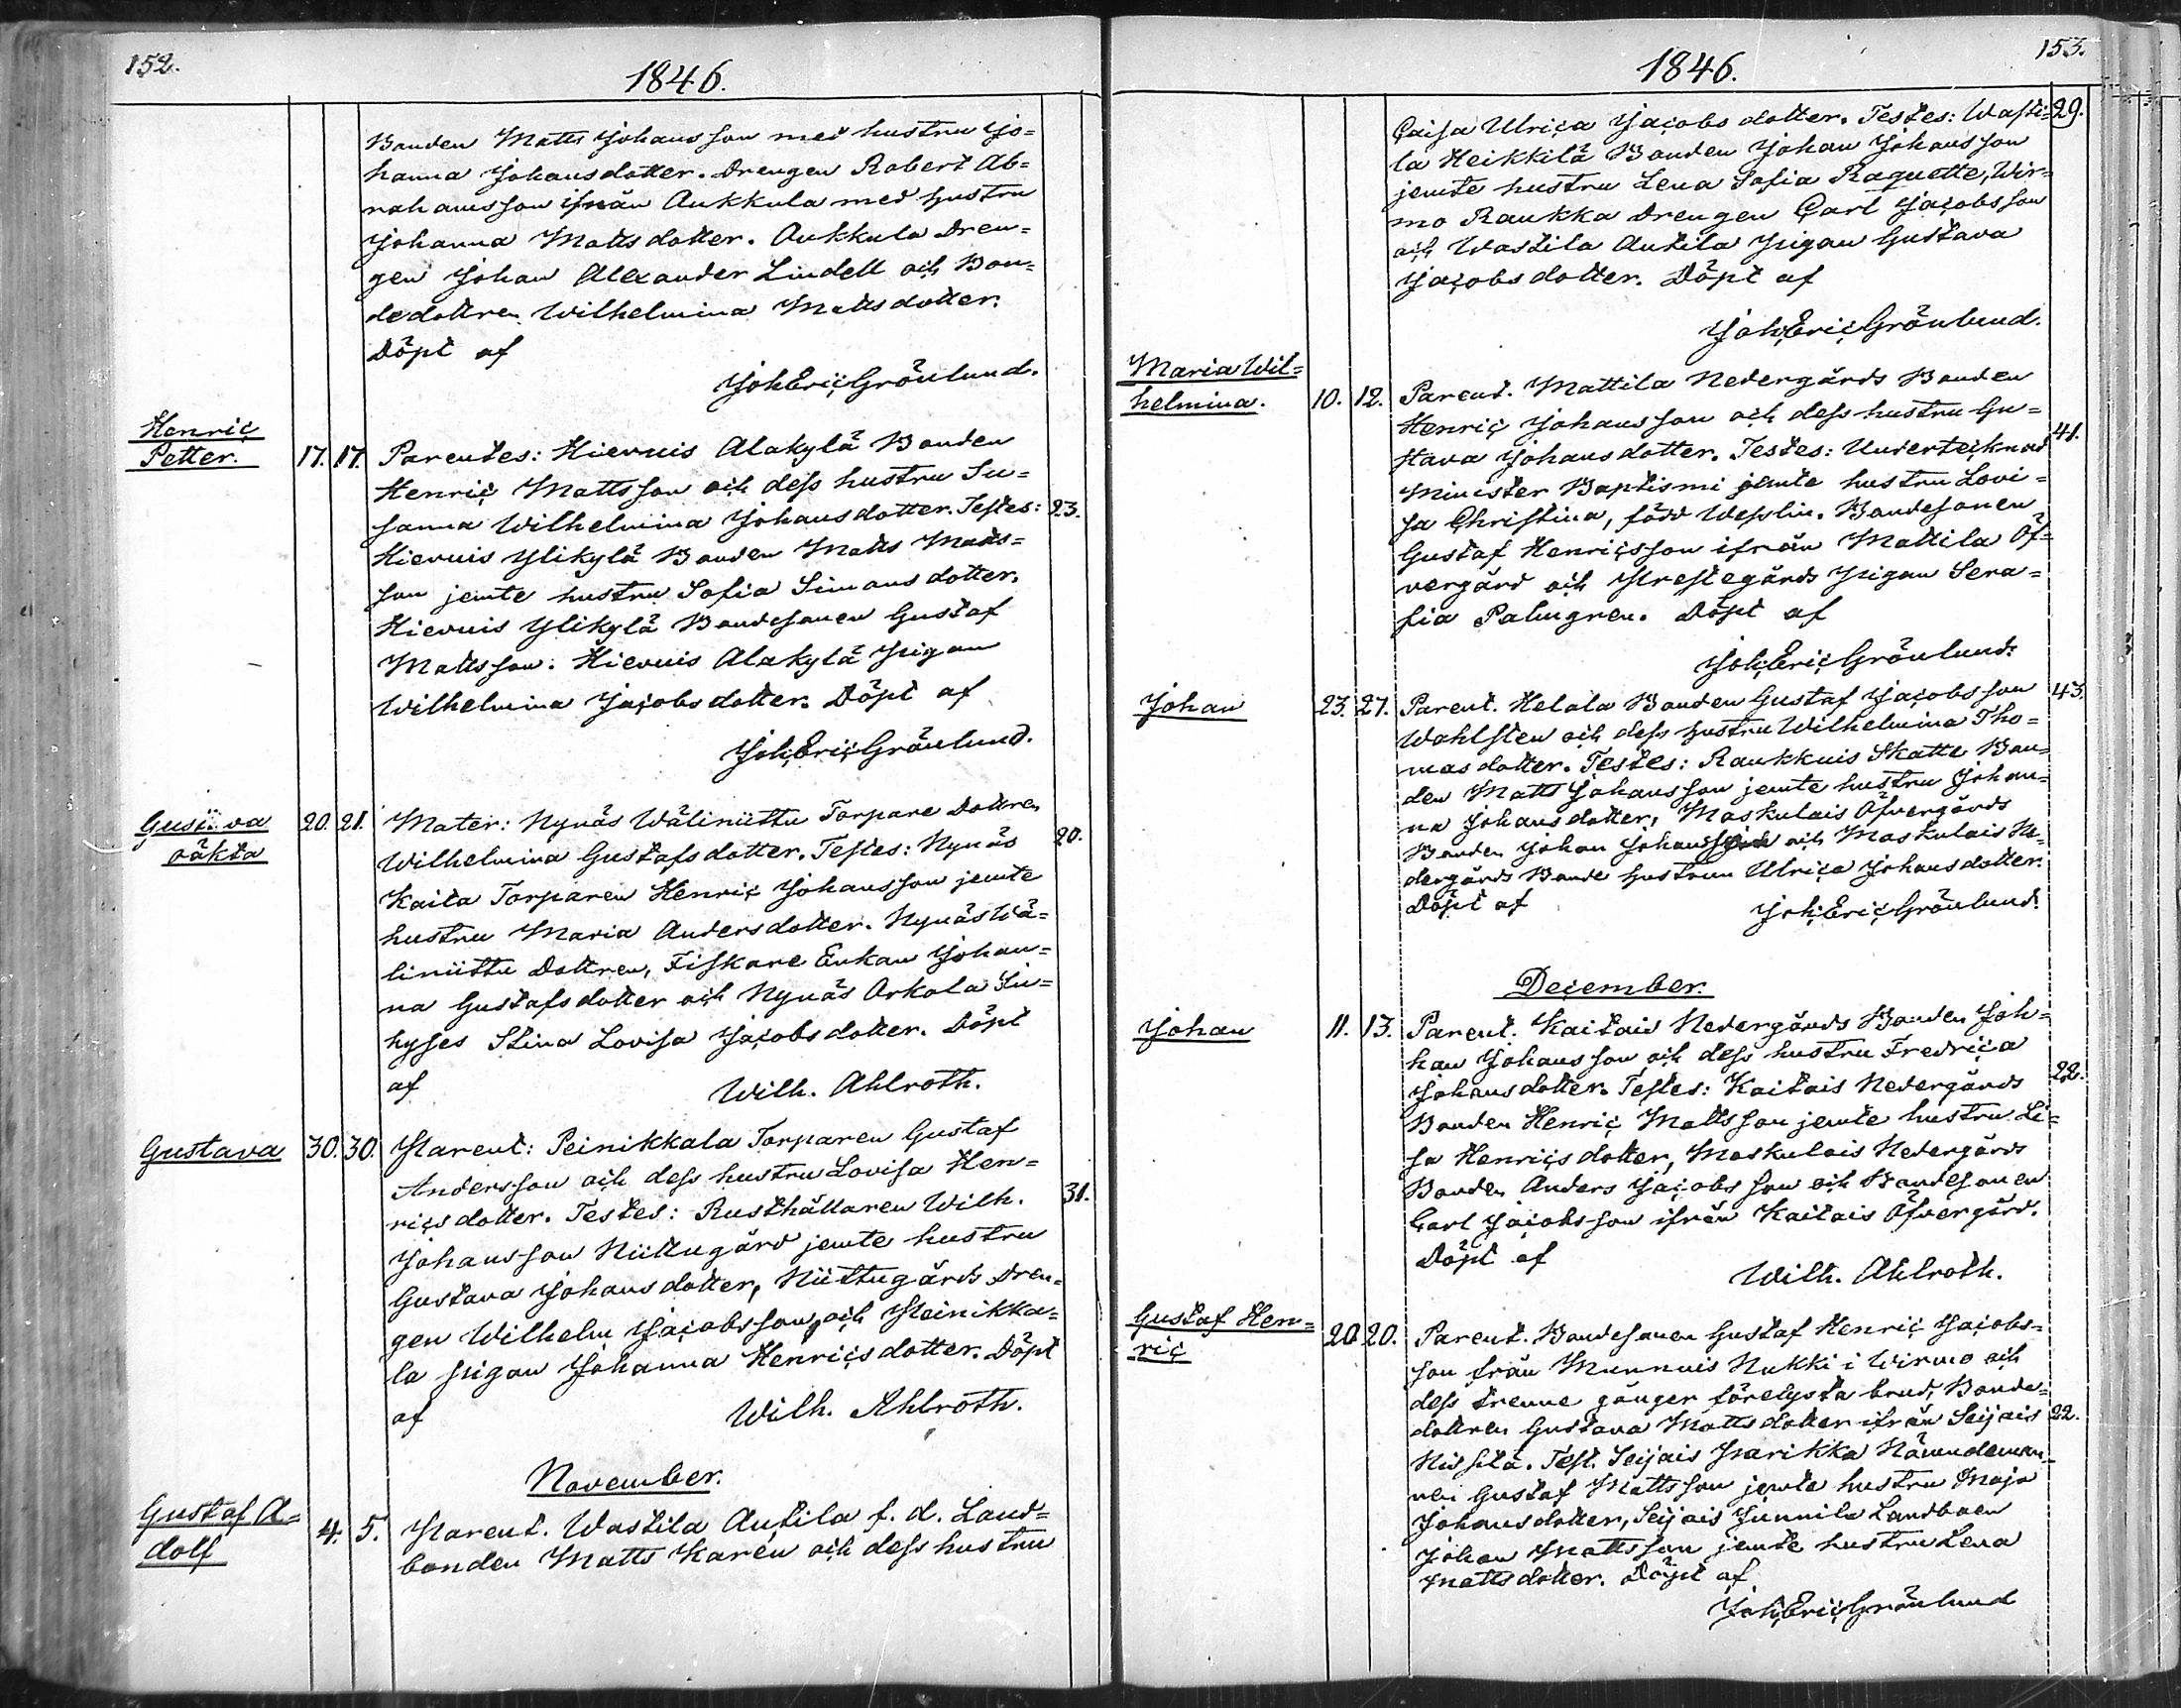 152.
1846.
Bonden Matts Johansson med hustru Jo=
hanna Johansdotter. Drengen Robert Ab=
rahamsson ifrån Aukkula med hustru
Johanna Mattsdotter. Aukkula Dren=
gen Johan Alexander Lindell och Bon=
dedottren Wilhelmina Mattsdotter.
Döpt af
Joh Eric Grönlund.
Henric
Petter. 17. 17. Parentes: Hiervuis Alakylä Bonden
Henric Mattsson och dess hustru Su=
sanna Wilhelmina Johansdotter. Testes: 23.
Hiervuis Ylikylä Bonden Matts Matts=
son jemte hustru Sofia Simonsdotter.
Hiervuis Ylikylä Bondesonen Gustaf
Mattsson. Hiervuis Alakylä pigan
Wilhelmina Jacobsdotter. Döpt af
Joh: Eric Grönlund.
Gustava 20. 21. Mater: Nynäs Wäliniittu Torpare Dottren
oäkta Wilhelmina Gustafsdotter. Testes: Nynäs 20.
Kaita Torparen Henric Johansson jemte
hustru Maria Andersdotter. Nynäs Wä=
liniittu Dottren, Fiskare Enkan Johan=
na Gustafsdotter och Nynäs Arkola In=
hyses Stina Lovisa Jacobsdotter. Döpt
af Wilh. Ahlroth.
Gustava 30. 30. Parent: Peinikkala Torparen Gustaf
Andersson och dess hustru Lovisa Hen=
ricsdotter. Testes: Rusthållaren Wilh. 31.
Johansson Niittugård jemte hustru
Gustava Johansdotter, Niittugårds Dren=
gen Wilhelm Jacobsson, och Peinikka=
la pigan Johanna Henricsdotter. Döpt
af Wilh. Ahlroth.
November.
Gustaf A=
dolf 4. 5. Parent. Wastila Antila f. d. Land=
bonden Matts Karén och dess hustru
153.
1846.
Cajsa Ulrica Jacobsdotter. Testes: Wasti= 29.
la Heikkilä Bonden Johan Johansson
jemte hustru Lena Sofia Raquette, Wir=
mo Raukka Drengen Carl Jacobsson
och Wastila Antila pigan Gustava
Jacobsdotter. Döpt af
Joh: Eric Grönlund.
Maria Wil=
helmina. 10. 12. Parent. Mattila Nedergårds Bonden
Henric Johansson och dess hustru Gu=
stava Johansdotter. Testes: Undertecknad 41.
Minister Baptismi jemte hustru Lovi=
sa Christina, född Wesslin. Bondesonen
Gustaf Henricsson ifrån Mattila Öf=
vergård och Prestegårds pigan Sera=
fia Palmgren. Döpt af
Joh: Eric Grönlund.
Johan 23. 27. Parent. Helala Bonden Gustaf Jacobsson 43.
Wahlsten och dess hustru Wilhelmina Tho=
masdotter. Testes: Raukkuis Skatte Bon=
den Matts Johansson jemte hustru Johan=
na Johansdotter, Maskulais Öfvergårds
Bonden Johan Johansson och Maskulais Ne=
dergårds Bonde hustrun Ulrica Johansdotter.
Döpt af Joh: Eric Grönlund.
December.
Johan 11. 13. Parent. Kaitais Nedergårds Bonden Joh=
han Johansson och dess hustru Fredrica
Johansdotter. Testes: Kaitais Nedergårds 22.
Bonden Henric Mattsson jemte hustru Li=
sa Henricsdotter, Maskulais Nedergårds
Bonden Anders Jacobsson och Bondesonen
Carl Jacobsson ifrån Kaitais Öfvergård.
Döpt af
Wilh. Ahlroth.
Gustaf Hen=
ric 20. 20. Parent. Bondesonen Gustaf Henric Jacobs=
son från Munnuis Nukki i Wirmo och
dess trenne gånger förelysta brud, Bonde=
dottren Gustava Mattsdotter ifrån Seijais 22.
Nissilä. Test. Seijais Parikka Nämndeman=
nen Gustaf Mattsson jemte hustru Maja
Johansdotter, Seijais Junnila Landboen
Johan Mattsson jemte hustru Lena
Mattsdotter. Döpt af
Joh: Eric Grönlund